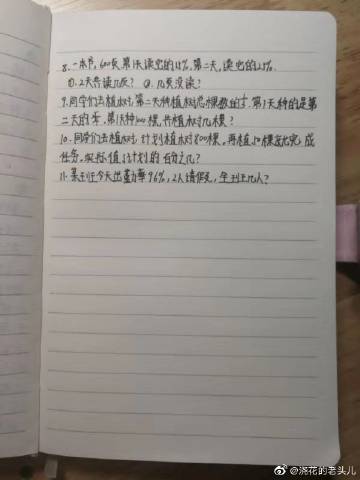 8.一本书,600页,第1天读它的15%,第二天,读它的25%.
①.2天各读几页? ②.几页没读?
9.同学们去植树,第二天种植树总棵数的.第1天种的是第
二天的,第1天种100棵,共植树几棵?
10.同学们去植树,计划植树800棵,再植50棵就完成
任务,实际值了计划的百分之几?
11.某班今天出勤率96%,2人请假,全班几人?
@浇花的老头儿